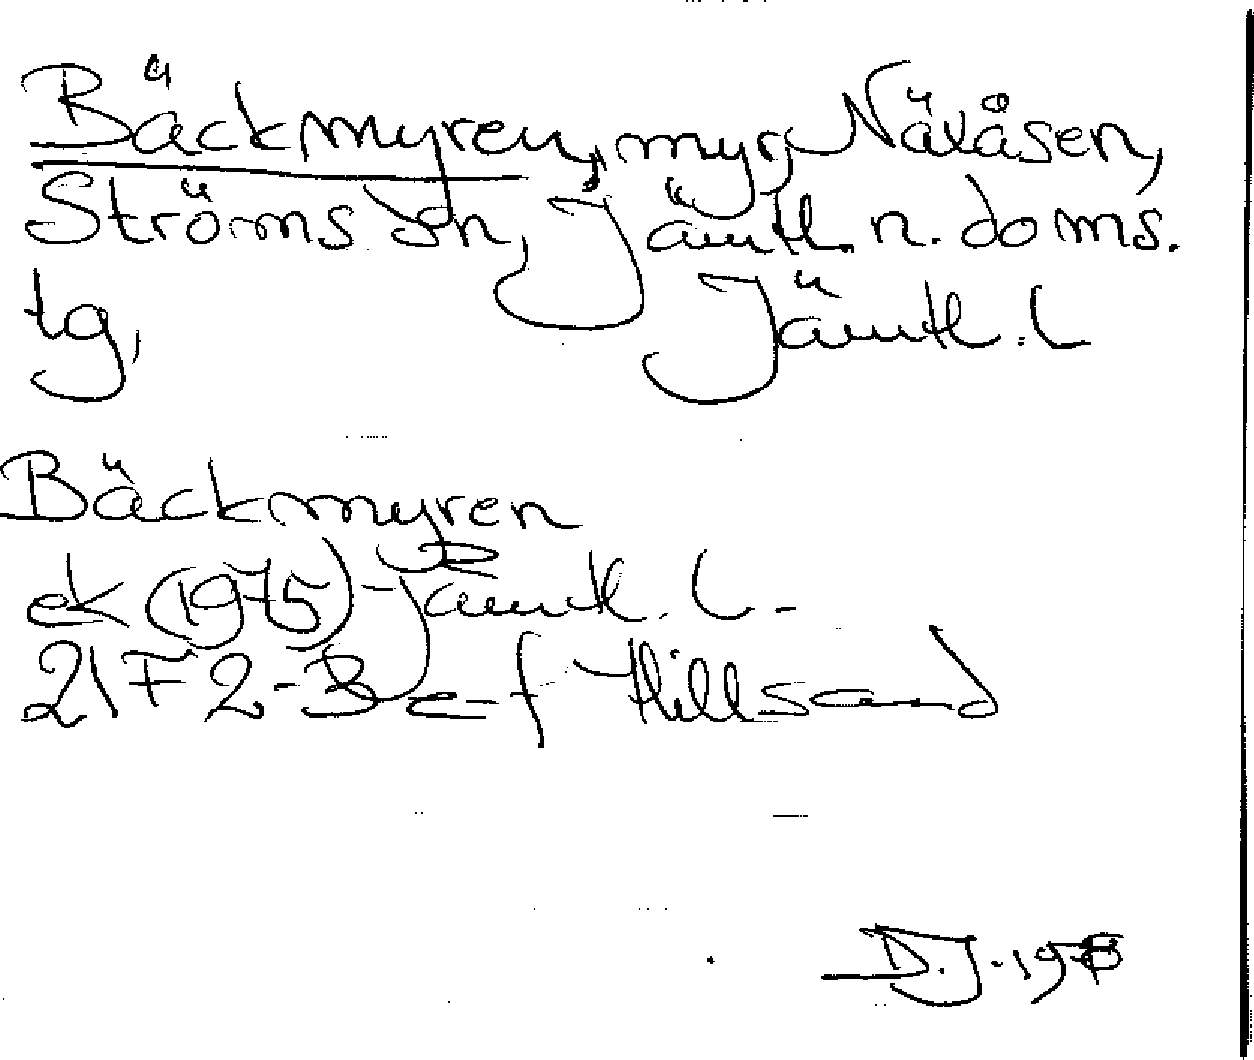 Bäckmyren, myr, Näxåsen,
Ströms sn, Jämtl. n. doms.
tg, Jämtl. l
Bäckmyren
ek (1975) Jämtl. l -
21 F 2-3 e-f Hillsand
D.J. 1978